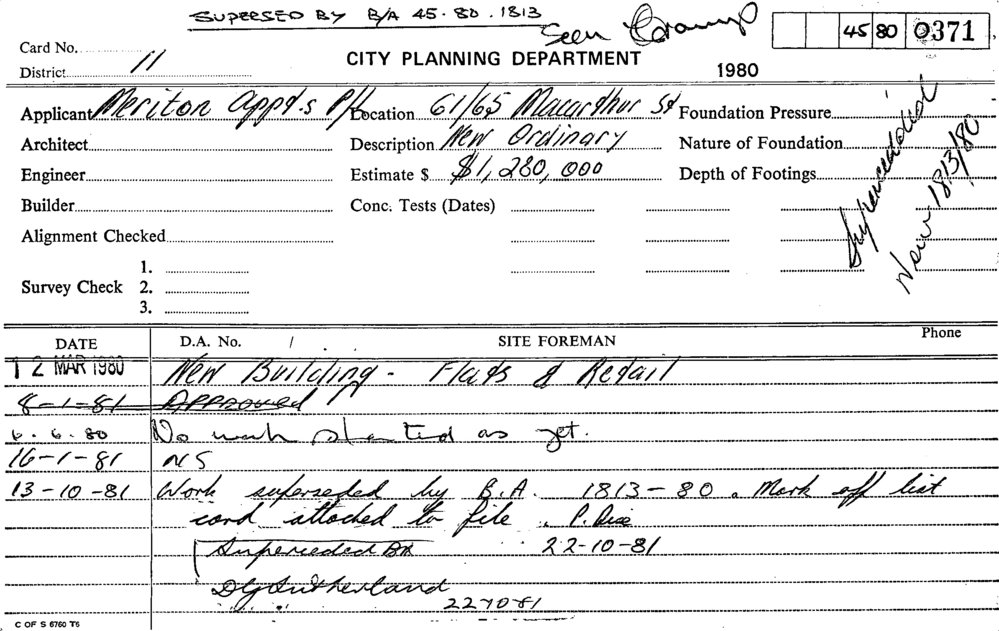 SUPERSED BY B/A 45.80.1813
Seen
45 80 0371
Card No.
CITY PLANNING DEPARTMENT
District 11
1980
Applicant Meriton Appt.s P/L Location 61/65 Macarthur St Foundation Pressure
Architect Description New Ordinary Nature of Foundation
Engineer Estimate $ $1,280,000 Depth of Footings
Superceded
New 1813/80
Builder Conc. Tests (Dates)
Alignment Checked
1.
Survey Check 2.
3.
DATE D.A. No. / SITE FOREMAN Phone
12 MAR 1980 New Building - Flats & Retail
8-1-81 APPROVED
6.6.80 No work started as yet.
16-1-81 NS
13-10-81 Work superseded by B.A. 1813-80. Mark off list
card attached to file. P.
Superceded BA 22-10-81
DG Sutherland
22-10-81
C OF S 6760 T6